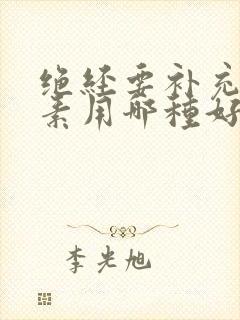 绝经要补充
素用哪種好
李光旭